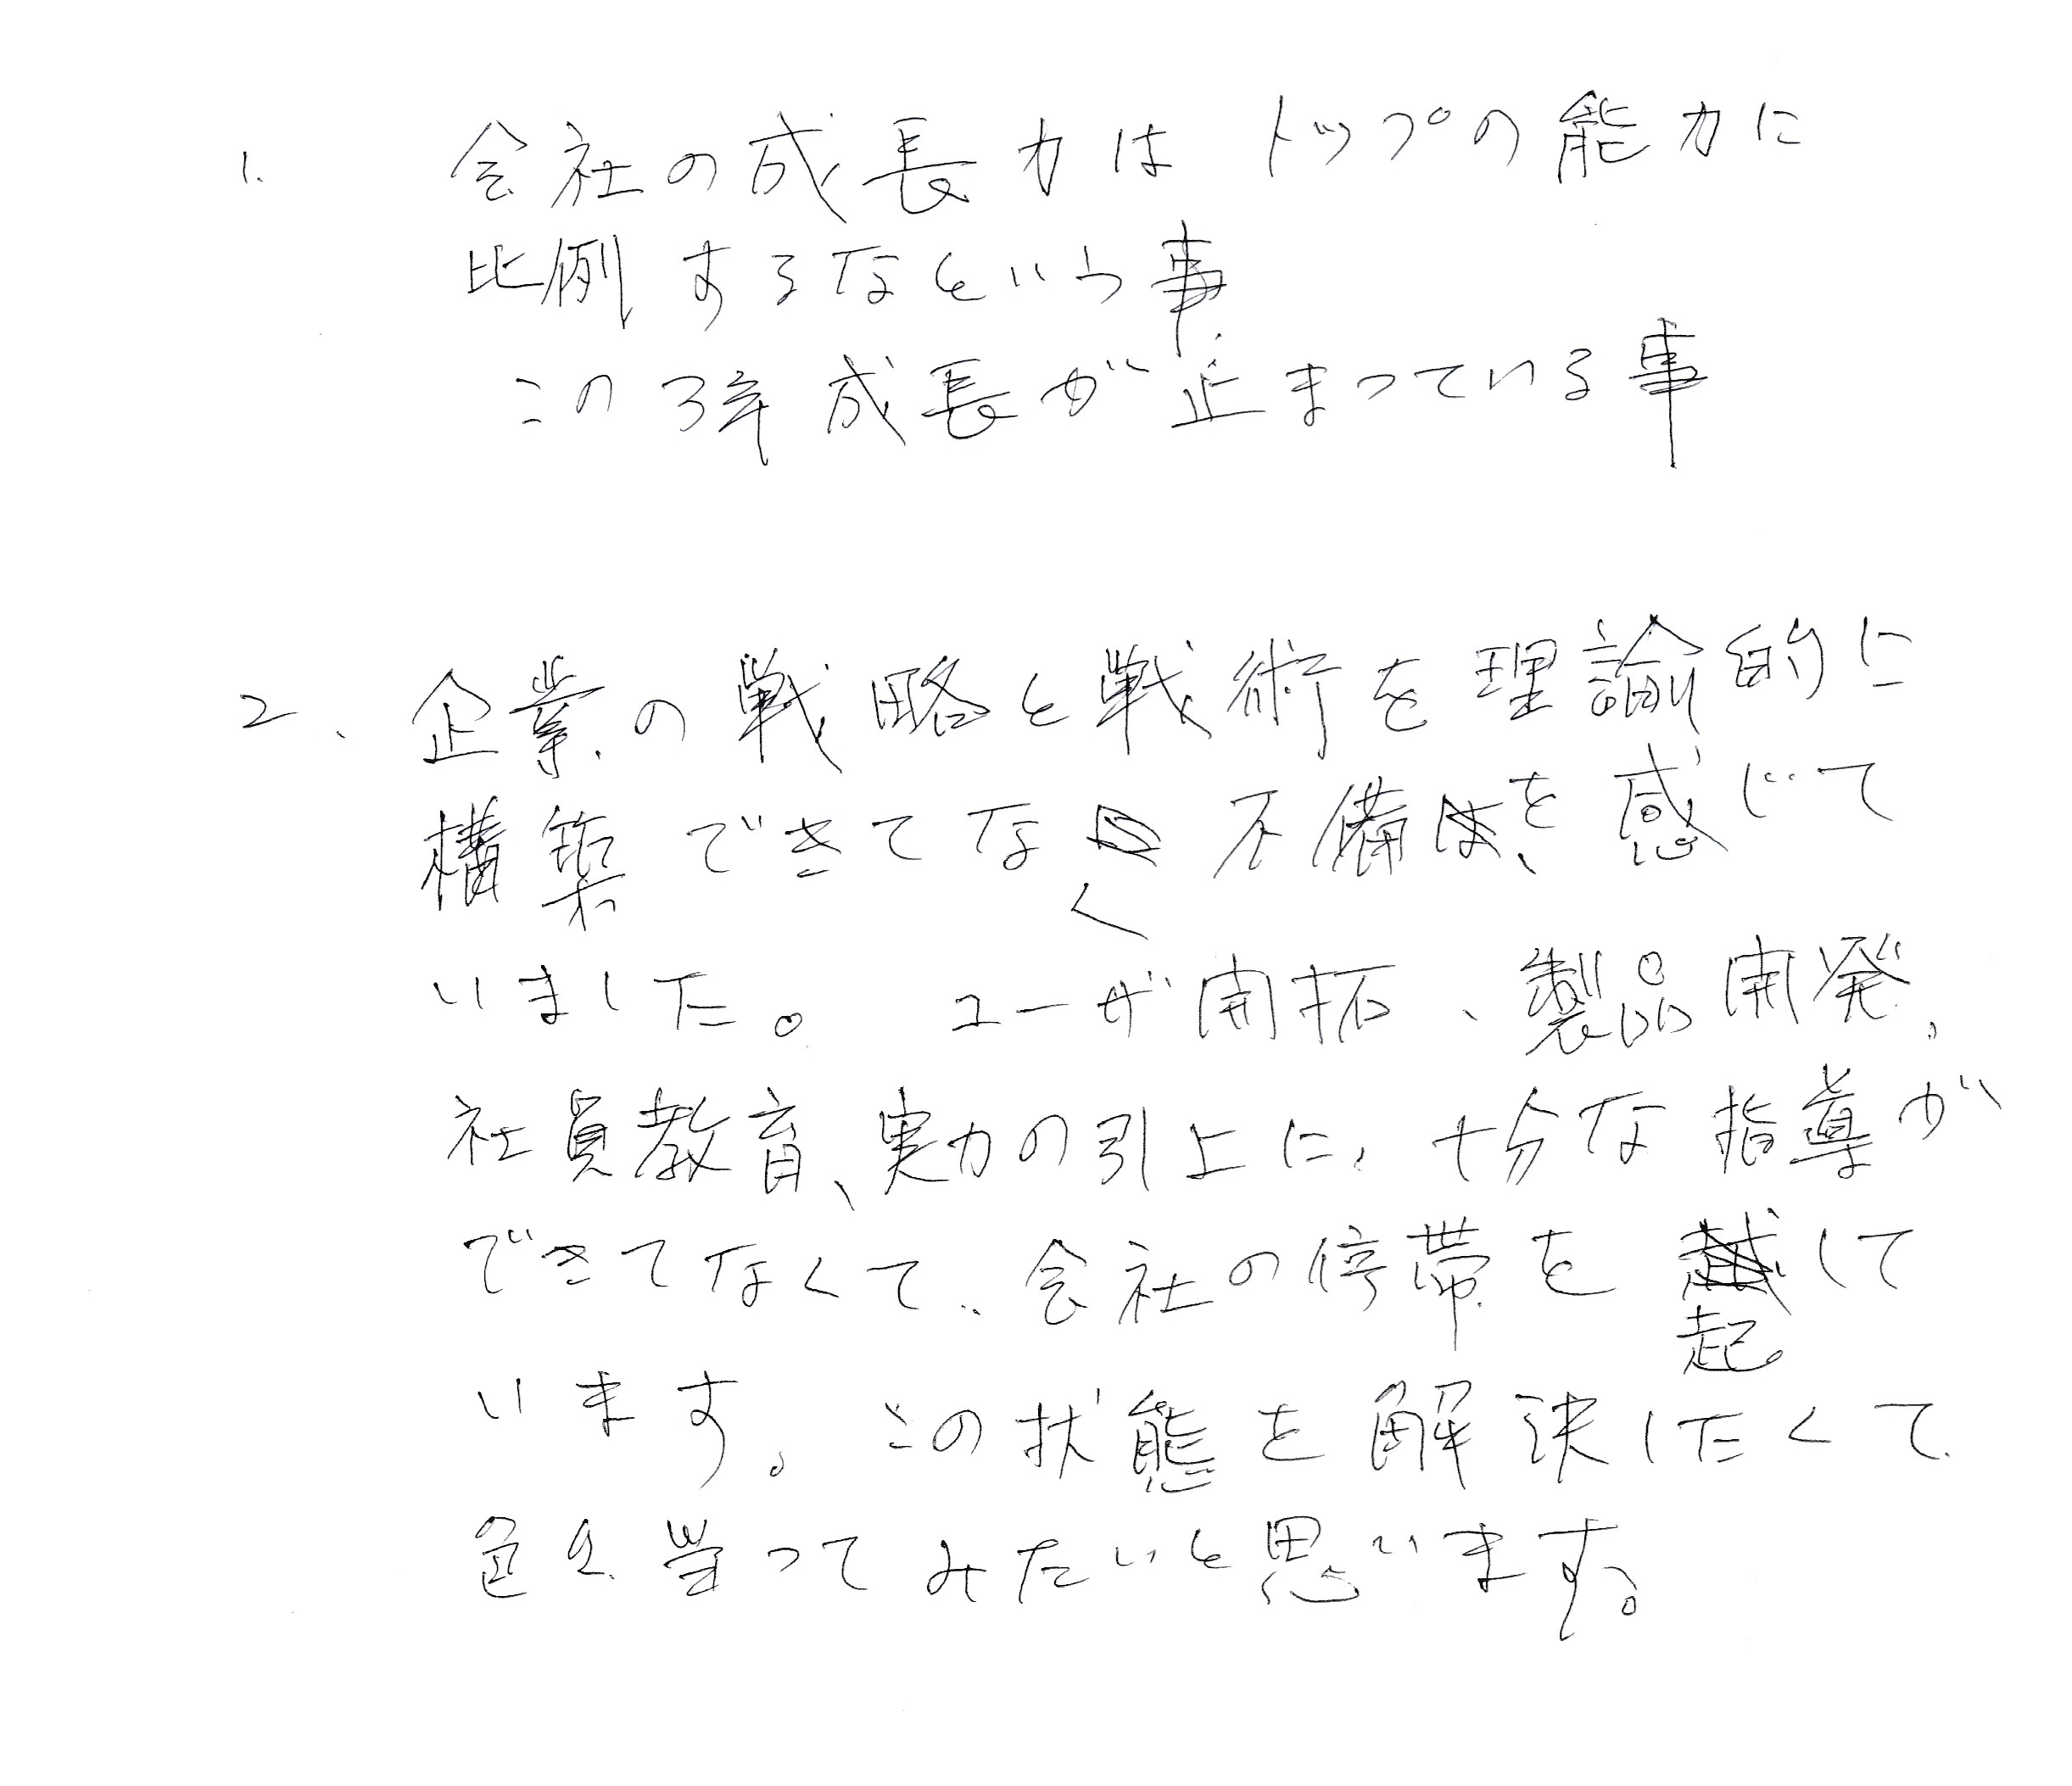 1. 会社の成長力はトップの能力に
比例するなという事
この3年成長が止まっている事
2. 企業の戦略と戦術を理論的に
構築できてなく不備を感じて
いました。ユーザ開拓、製品開発、
社員教育、実力の引上に、十分な指導が
できてなくて、会社の停帯を起して
います。この状態を解決したくて
色々習ってみたいと思います。